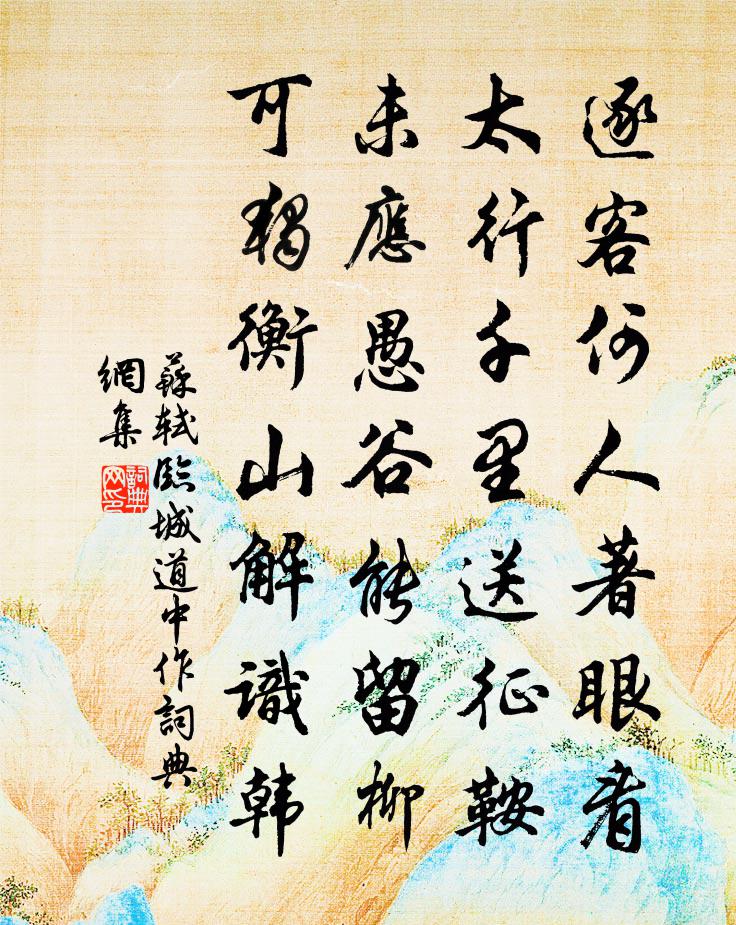 逐客何人著眼看
太行千里送征鞍
未應愚谷能留柳
可獨衡山解識韓
蘇軾臨城道中作詞典
網集
詞典
网印